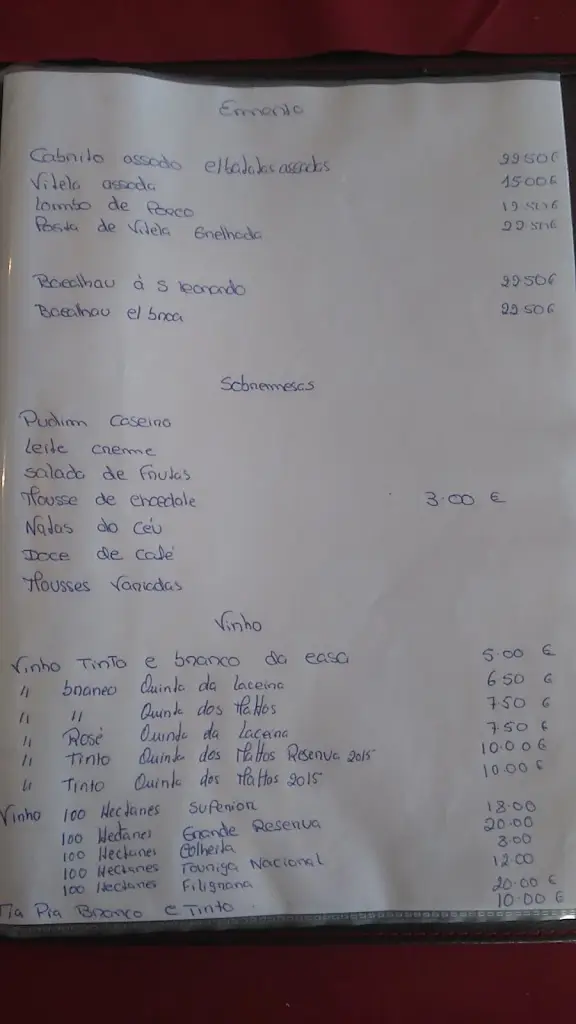 Ementa
Cabrito assado c/batatas assadas 22.50€
Vitela assada 15.00€
Lombo de Porco 12.50€
Posta de Vitela Grelhada 22.50€
Bacalhau à S Leonardo 22.50€
Bacalhau c/ broa 22.50€
Sobremesas
Pudim Caseiro
Leite creme
Salada de Frutas
Mousse de chocolate 3.00 €
Natas do Céu
Doce de Café
Mousses Variadas
Vinho
Vinho Tinto e branco da casa 5.00 €
" branco Quinta da Laceira 6.50 €
" " Quinta dos Mattos 7.50 €
" Rosé Quinta da Laceira 7.50 €
" Tinto Quinta dos Mattos Reserva 2015 10.00€
" Tinto Quinta dos Mattos 2015 10.00 €
Vinho 100 Hectares Superior 18.00
100 Hectares Grande Reserva 20.00
100 Hectares Colheita 8.00
100 Hectares Touriga Nacional 12.00
100 Hectares Filigrana 20.00 €
Tia Pia Branco e Tinto 10.00 €